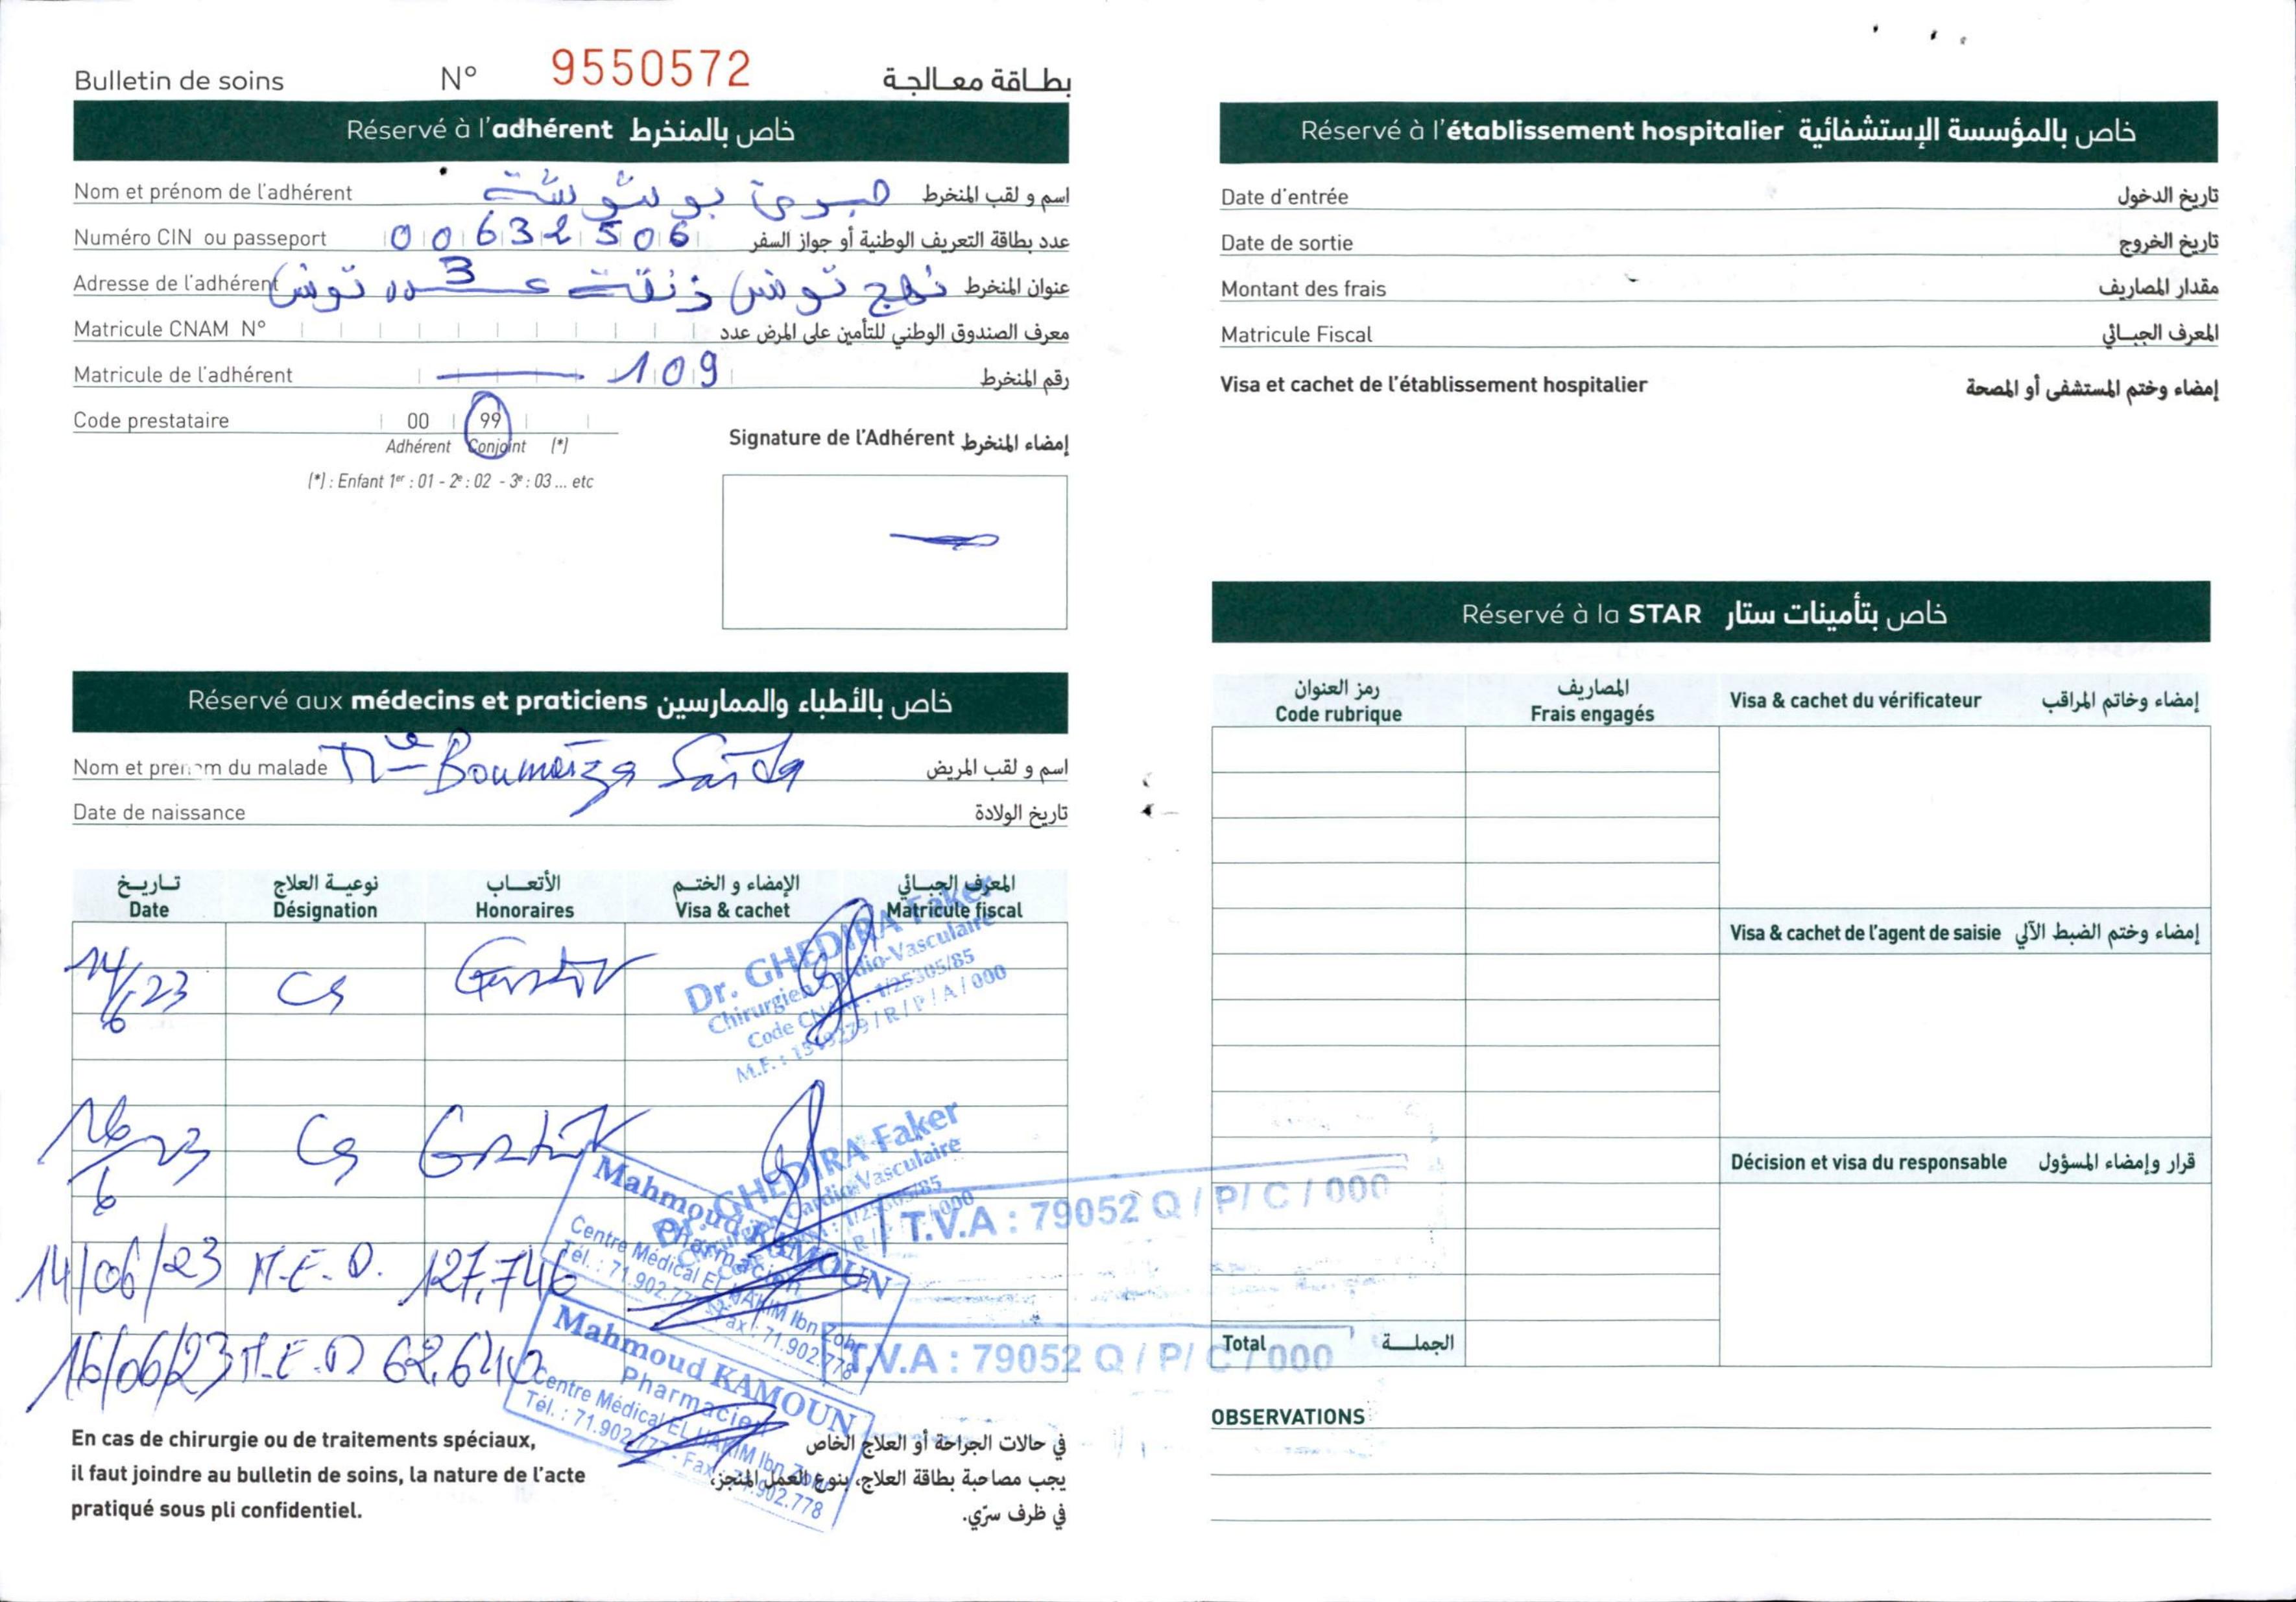 Bulletin de soins N° 9550572 بطاقة معالجة
Réservé à l'adhérent خاص بالمنخرط
Nom et prénom de l'adhérent صبري بوشوشة اسم و لقب المنخرط
Numéro CIN ou passeport 00632506 عدد بطاقة التعريف الوطنية أو جواز السفر
Adresse de l'adhérent نهج تونس زنقة عدد 3 تونس عنوان المنخرط
Matricule CNAM N° معرف الصندوق الوطني للتأمين على المرض عدد
Matricule de l'adhérent 109 رقم المنخرط
Code prestataire 00 99
Adhérent Conjoint (*)
(*) : Enfant 1er : 01 - 2e : 02 - 3e : 03 ... etc
Signature de l'Adhérent إمضاء المنخرط
Réservé aux médecins et praticiens خاص بالأطباء والممارسين
Nom et prénom du malade Boumaiza Saida اسم و لقب المريض
Date de naissance تاريخ الولادة
تاريخ نوعية العلاج الأتعاب الإمضاء و الختم المعرف الجبائي
Date Désignation Honoraires Visa & cachet Matricule fiscal
14/6/23 CS
Dr. GHEDIRA Faker
Chirurgien Cardio-Vasculaire
Code CNAM : 1/25305/85
16/6/23 CS
Dr. GHEDIRA Faker
Chirurgien Cardio-Vasculaire
14/06/23 M.E.D. 127,746
Mahmoud KAMOUN
Pharmacien
Centre Médical EL HAKIM Ibn Zohr
Tél. : 71.902.777 - Fax : 71.902.778
T.V.A : 79052 Q / P/ C / 000
16/06/23 M.E.D 62,642
Mahmoud KAMOUN
Pharmacien
Centre Médical EL HAKIM Ibn Zohr
Tél. : 71.902.777 - Fax : 71.902.778
T.V.A : 79052 Q / P/ C / 000
En cas de chirurgie ou de traitements spéciaux,
il faut joindre au bulletin de soins, la nature de l'acte
pratiqué sous pli confidentiel.
في حالات الجراحة أو العلاج الخاص
يجب مصاحبة بطاقة العلاج، بنوع العمل المنجز،
في ظرف سرّي.
Réservé à l'établissement hospitalier خاص بالمؤسسة الإستشفائية
Date d'entrée تاريخ الدخول
Date de sortie تاريخ الخروج
Montant des frais مقدار المصاريف
Matricule Fiscal المعرف الجبائي
Visa et cachet de l'établissement hospitalier إمضاء وختم المستشفى أو المصحة
Réservé à la STAR خاص بتأمينات ستار
رمز العنوان المصاريف
Code rubrique Frais engagés
Visa & cachet du vérificateur إمضاء وخاتم المراقب
Visa & cachet de l'agent de saisie إمضاء وختم الضبط الآلي
Décision et visa du responsable قرار وإمضاء المسؤول
Total الجملة
OBSERVATIONS